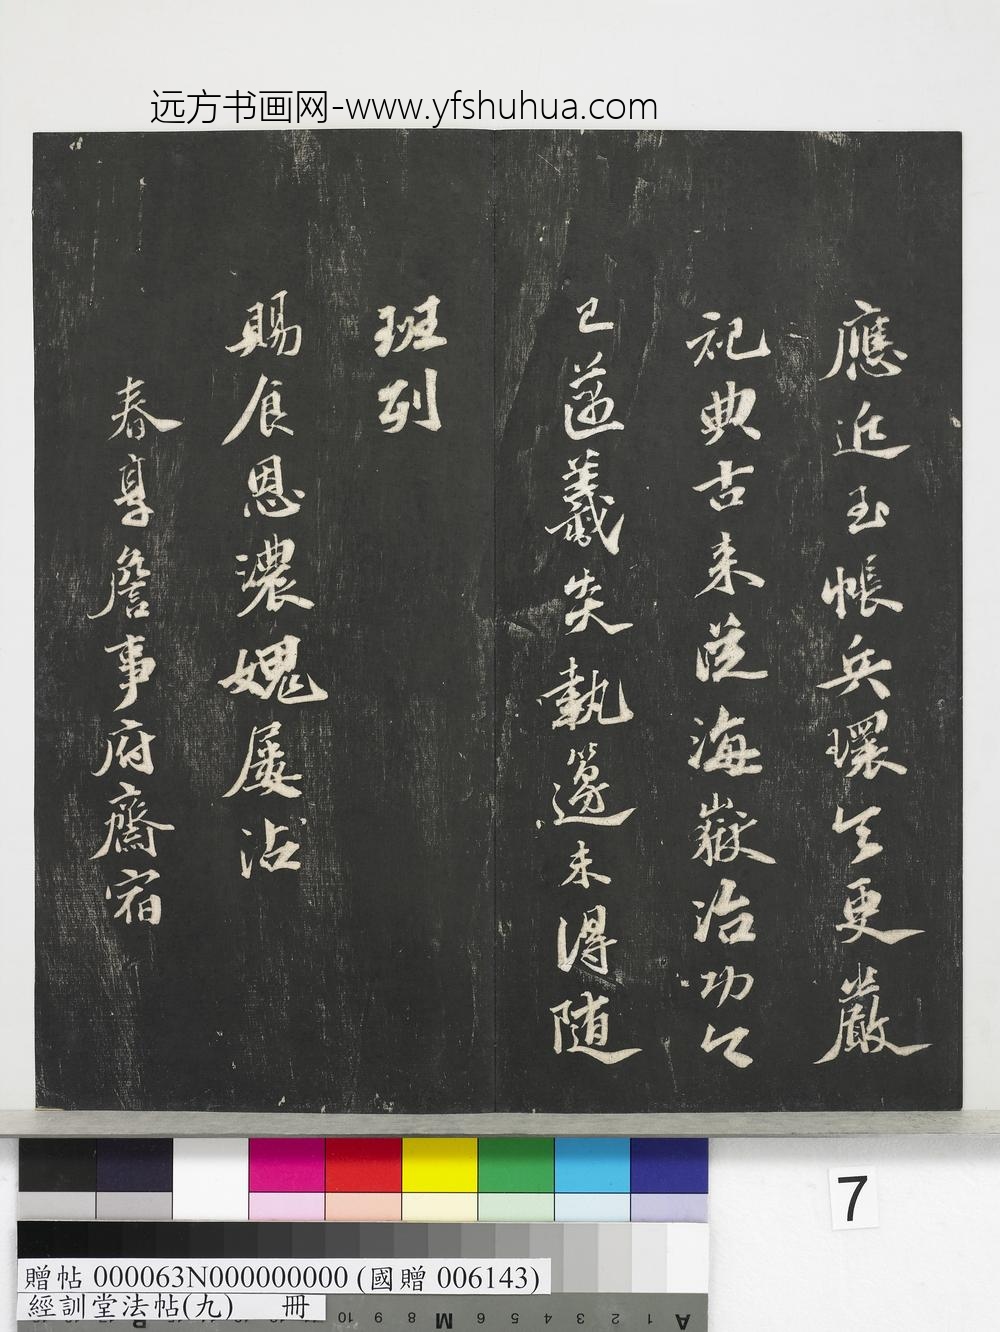 远方书画网-www.yfshuhua.com
應近玉帳兵環令更嚴
祀典古来從海嶽治功今
已邁羲炎執籩未得隨
班列
賜食恩濃媿屢沾
春享詹事府齋宿
7
贈帖 000063N000000000 (國贈 006143)
經訓堂法帖(九) 冊
10 9 8 7 M 6 5 4 3 2 1 A